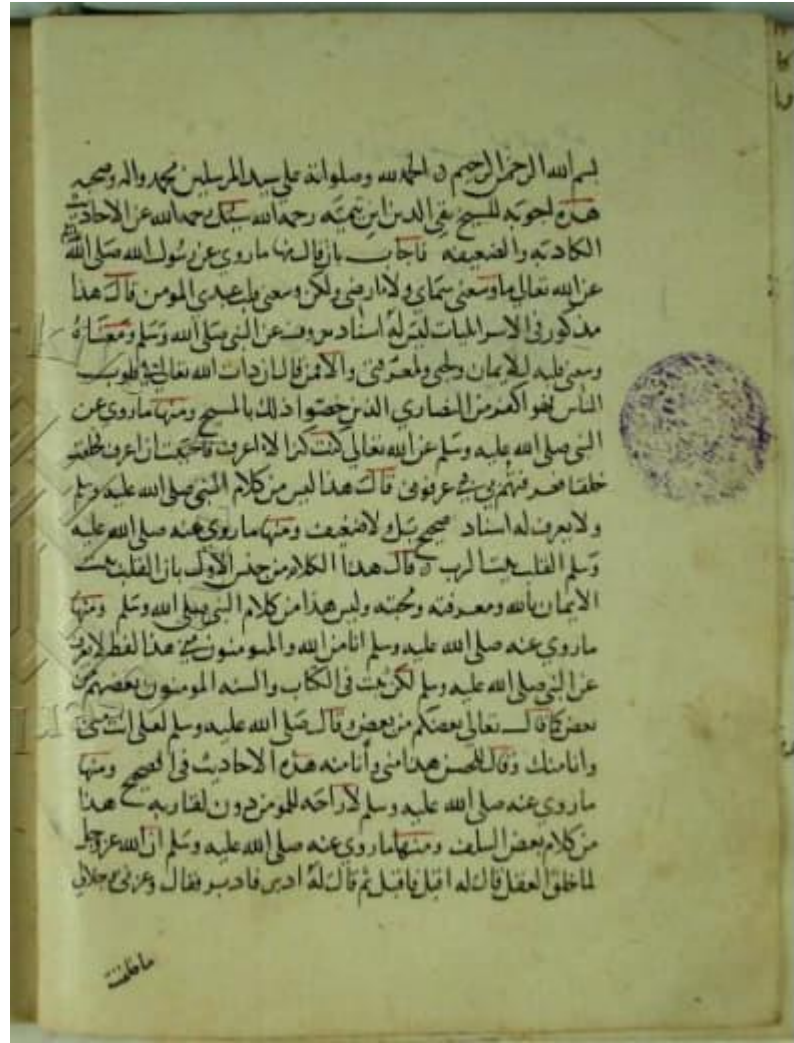 بسم الله الرحمن الرحيم ن الحمد لله وصلواته على سيد المرسلين محمد واله وصحبه
هذه اجوبة للشيخ تقي الدين ابن تيمية رحمه الله سيئل رحمه الله عن الاحاديث
الكادبه والضعيفه فاجاب بان قال منها ماروي عن رسول الله صلى الله
عن الله تعالى ما وسعني سماي ولا ارضي ولكن وسعني قلب عبدي المومن قال هذا
مذكور في الاسراليات ليس له اسناد معروف عن النبي صلى الله وسلم ومعناه
وسعني قلبه الايمان ومحبتي ومعرفتي والا فمن قال ان ذات الله تعالى في قلوب
الناس فهو اكفر من النصاري الذين خصوا ذلك بالمسيح ومنها ماروي عن
النبي صلى الله عليه وسلم عن الله تعالى كنت كنزا لا اعرف فاحببت ان اعرف فخلقت
خلقا فعرفتهم بي فبي عرفوني قال هذا ليس من كلام النبي صلى الله عليه وسلم
ولا يعرف له اسناد صحيح بل ولا ضعيف ومنها ماروي عنه صلى الله عليه
وسلم القلب بيت الرب ن قال هذا الكلام من جنس الاول بان القلب بيت
الايمان بالله ومعرفته ومحبته وليس هذا من كلام النبي صلى الله وسلم ومنها
ماروي عنه صلى الله عليه وسلم انا من الله والمومنون مني هذا لفظ لا يعرف
عن النبي صلى الله عليه وسلم لكن ثبت في الكتاب والسنه المومنون بعضهم من
بعض كما قال تعالى بعضكم من بعض وقال صلى الله عليه وسلم لعلي انت مني
وانا منك وقال للحسن هذا مني وانا منه هذه الاحاديث في الصحيح ومنها
ماروي عنه صلى الله عليه وسلم لا راحه للمومن دون لقا ربه هذا
من كلام بعض السلف ومنها ماروي عنه صلى الله عليه وسلم ان الله عز وجل
لما خلق العقل قال له اقبل فاقبل ثم قال له ادبر فادبر فقال وعزتي وجلالي
ما خلقت